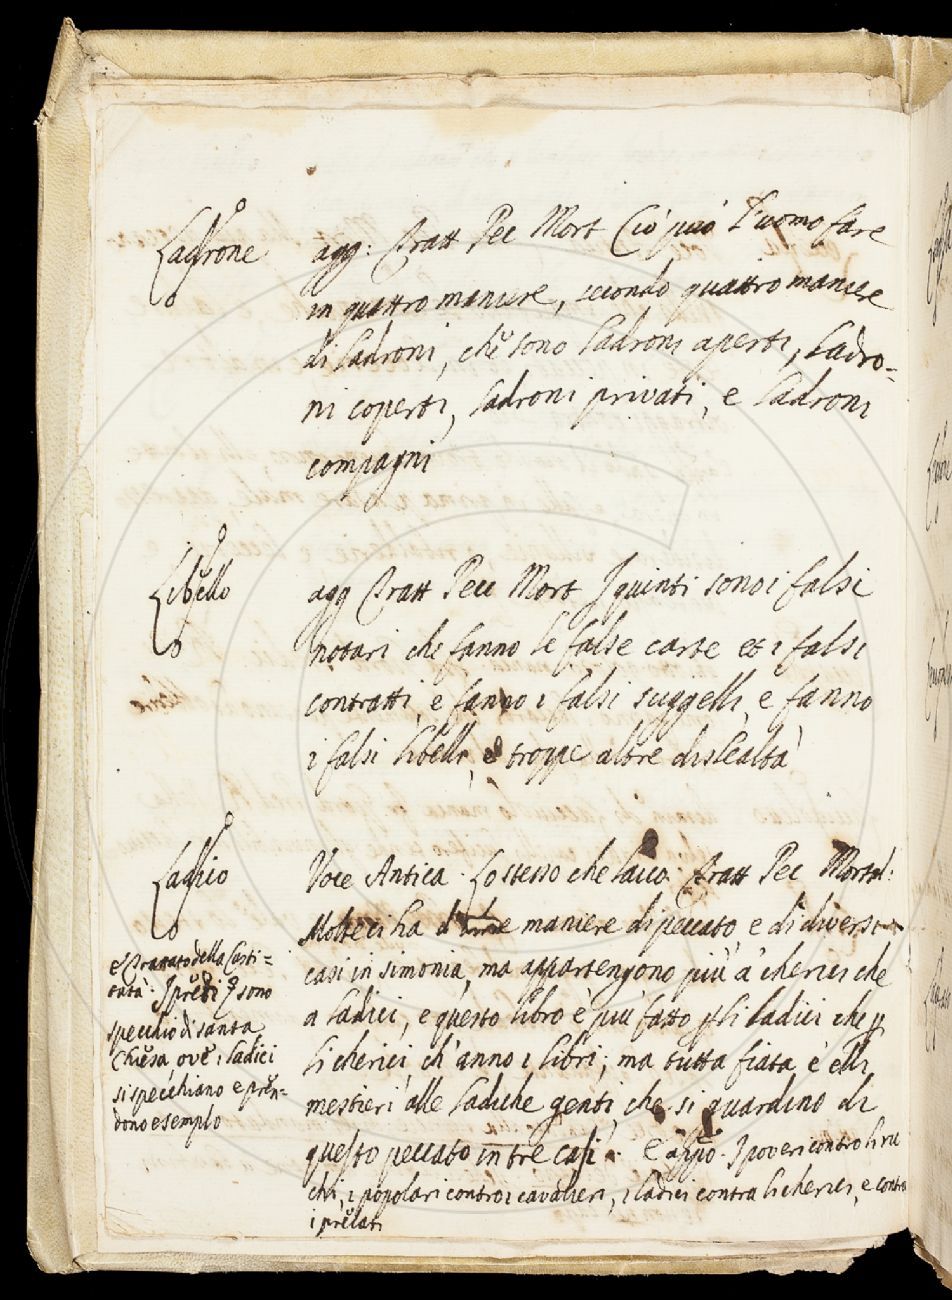 Ladrone
agg: Tratt Pec Mort Ciò può l'uomo fare
in quattro maniere, secondo quattro maniere
di ladroni, che sono ladroni aperti, ladro=
ni coperti, ladroni privati, e ladroni
compagni
Libello
agg Tratt Pecc Mort I quinti sono i falsi
notari che fanno le false carte et i falsi
contratti, e fanno i falsi suggelli, e fanno
i falsi libelli, e troppe altre dislealtà
Ladico
Voce Antica. Lo stesso che laico. Tratt Pec Mortal:
Molte ci ha d'altre maniere di peccato, e di diversi
casi in simonia, ma appartengono più a' cherici che
a ladici, e questo libro è più fatto p li ladici che p
li cherici ch'anno i libri; ma tutta fiata è elli
mestieri alle ladiche genti, che si guardino di
questo peccato in tre casi. E appo. I poveri contro li ric
chi, i popolari contro i cavalieri, i ladici contra li cherici, e contro
i prelati
E Trattato della Casti=
tata: I preti sono
specchio di santa
Chiesa, ove i ladici
si specchiano e pren=
dono esemplo